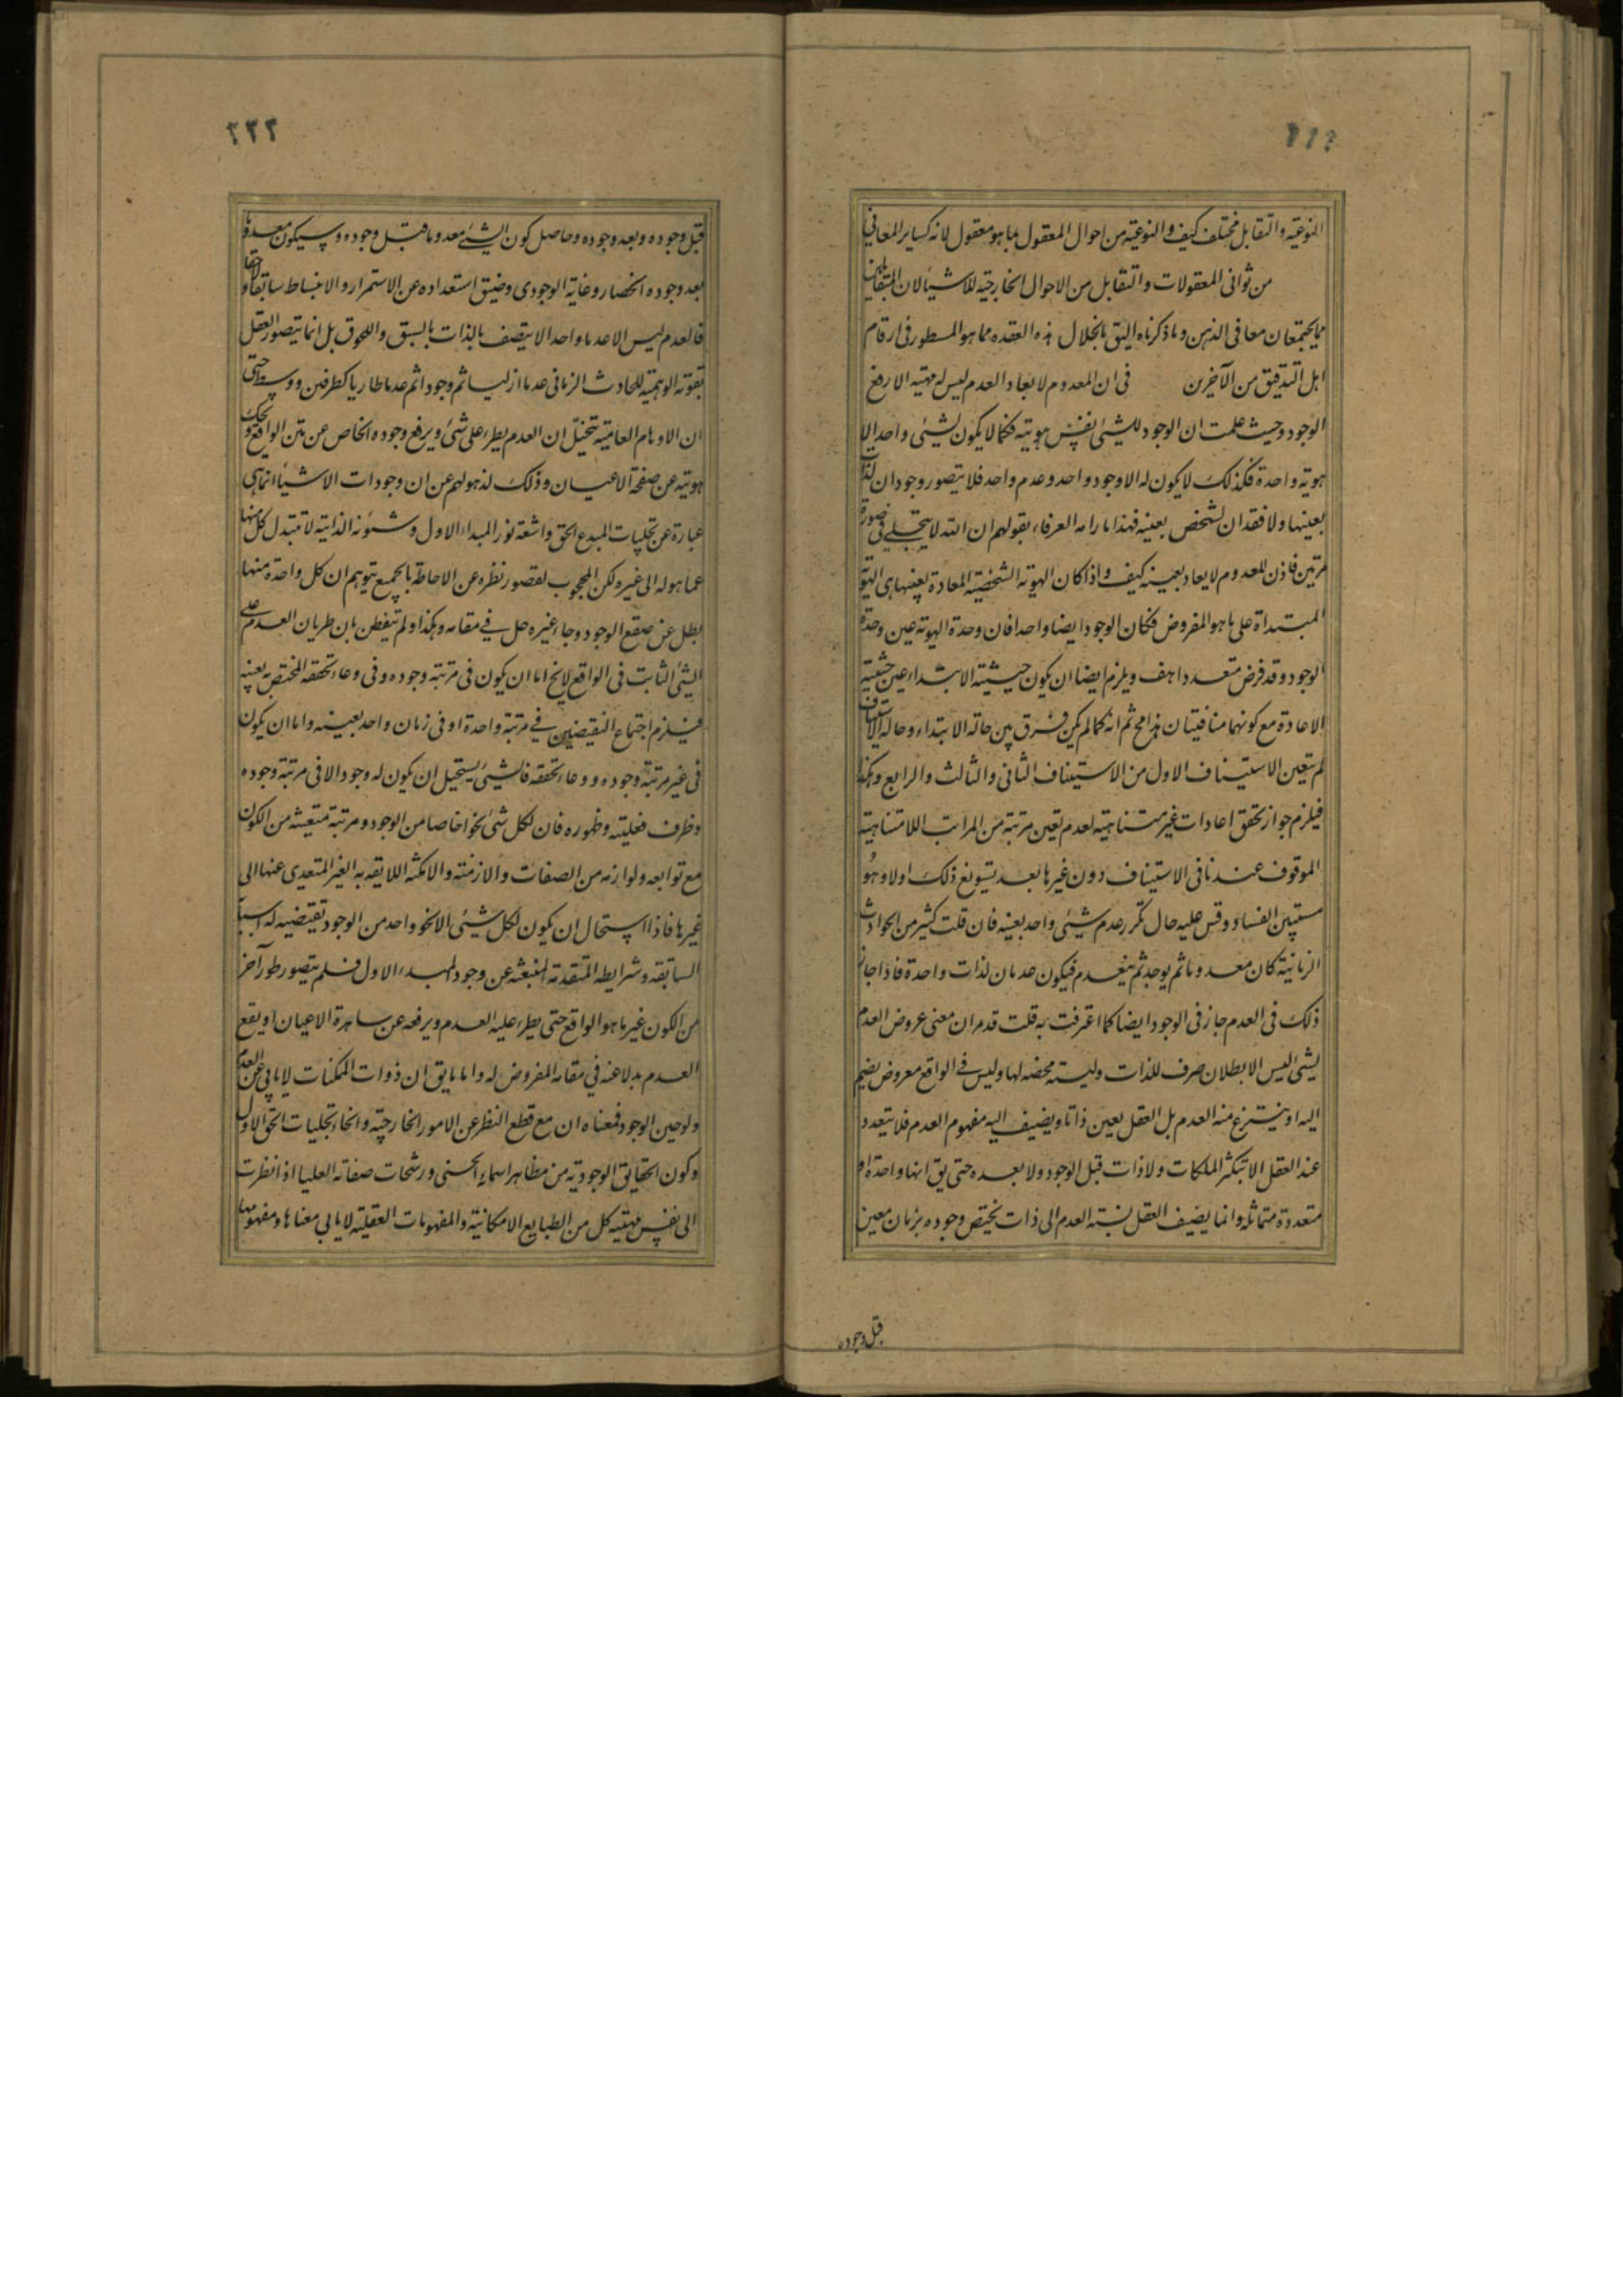 النوعية والتقابل مختلف كيف والنوعية من احوال المعقول بما هو معقول لانه كساير المعانى
من ثوانى المعقولات والتقابل من الاحوال الخارجية للاشياء لان المتقابلين
مما يجتمعان معا فى الذهن وما ذكرناه اليق بانحلال هذه العقده مما هو المسطور فى ارقام
اهل التدقيق من الآخرين فى ان المعدوم لا يعاد العدم ليس له مهية الا رفع
الوجود وحيث علمت ان الوجود للشيئ نفس هويته فكما لا يكون لشيئ واحد الا
هوية واحدة فكذلك لا يكون له الا وجود واحد وعدم واحد فلا يتصور وجودان لذات
بعينها ولا فقدان لشخص بعينه فهذا ما رامه العرفاء بقولهم ان الله لا يتجلى فى صورة
مرتين فاذن المعدوم لا يعاد بعينه كيف واذا كان الهوية الشخصية المعادة بعينها هى الهوية
المبتداة على ما هو المفروض فكان الوجود ايضا واحدا فان وحدة الهوية عين وحدة
الوجود وقد فرض متعددا هف ويلزم ايضا ان يكون حيثية الابتداء عين حيثية
الاعادة مع كونهما متنافيتان هذا مح ثم انه كما لم يكن فرق بين حالة الابتداء وحالة الاستيناف
لم يتعين الاستيناف الاول من الاستيناف الثانى والثالث والرابع وهكذا
فيلزم جواز تحقق اعادات غير متناهية لعدم تعين مرتبة من المراتب اللامتناهية
الموقوف عندنا فى الاستيناف دون غيرها بعد تسويغ ذلك اولا وهو
مستبين الفساد وقس عليه حال تكرر عدم شيئى واحد بعينه فان قلت كثير من الحوادث
الزمانية كان معدوما ثم يوجد ثم ينعدم فيكون عدمان لذات واحدة فاذا جاز
ذلك فى العدم جاز فى الوجود ايضا كما اعترفت به قلت قد مر ان معنى عروض العدم
لشئ ليس الا بطلان صرف للذات وليسته محضه لها وليس فى الواقع معروض يضم
اليه او ينتزع منه العدم بل العقل يعين ذاتا ويضيف اليه مفهوم العدم فلا يتعدد
عند العقل الا بتكثر الملكات ولا ذات قبل الوجود ولا بعده حتى يق انها واحدة او
متعددة متماثلة وانما يضيف العقل نسبة العدم الى ذات يختص وجوده بزمان معين
قبل وجوده
٢٣٢
قبل وجوده وبعد وجوده وحاصل كون الشئ معدوما قبل وجوده وسيكون معدوما
بعد وجوده انحصار وعائه الوجودى وضيق استعداده عن الاستمرار والانبساط سابقا ولاحقا
فالعدم ليس الا عدما واحدا لا يتصف بالذات بالسبق واللحوق بل انما يتصور العقل
بقوته الوهمية للحادث الزمانى عدما ازليا ثم وجودا ثم عدما طاريا كطرفين ووسط حتى
ان الاوهام العامية تتخيل ان العدم يطرء على شئ ويرفع وجوده الخاص عن متن الواقع ويحك
هويته عن صفحة الاعيان وذلك لذهولهم عن ان وجودات الاشياء انما هى
عبارة عن تجليات المبدع الحق واشعة نور المبداء الاول وشئونه الذاتية لا تتبدل كل منها
عما هو له الى غيره لكن المحجوب لقصور نظره عن الاحاطة بالجميع يتوهم ان كل واحدة منها
بطل عن صقع الوجود وجاء غيره حل فى مقامه وهكذا ولم يتفطن بان طريان العدم على
الشئ الثابت فى الواقع لا يخ اما ان يكون فى مرتبة وجوده وفى وعاء تحققه المختص به بعينه
فيلزم اجتماع النقيضين فى مرتبة واحدة او فى زمان واحد بعينه واما ان يكون
فى غير مرتبة وجوده ووعاء تحققه فالشيئ يستحيل ان يكون له وجود الا فى مرتبة وجوده
وظرف فعليته وظهوره فان لكل شئ نحوا خاصا من الوجود ومرتبة متعينه من الكون
مع توابعه ولوازمه من الصفات والازمنة والامكنه اللايقه به الغير المتعدى عنها الى
غيرها فاذا استحال ان يكون لكل شيئى الا نحو واحد من الوجود تقتضيه له اسبابه
السابقه وشرايطه المتقدمة المنبعثه عن وجود المبدء الاول فلم يتصور طور آخر
من الكون غير ما هو الواقع حتى يطرء عليه العدم ويرفعه عن ساهرة الاعيان او يقع
العدم بدلا عنه فى مقامه المفروض له واما ما يق ان ذوات الممكنات لا يابى عن العدم
ولو حين الوجود فمعناه ان مع قطع النظر عن الامور الخارجية وانحاء تجليات الحق الاول
وكون الحقايق الوجودية من مظاهر اسماء الحسنى ورشحات صفاته العليا اذا نظرت
الى نفس مهية كل من الطبايع الامكانية والمفهومات العقلية لا يابى معناها ومفهومها